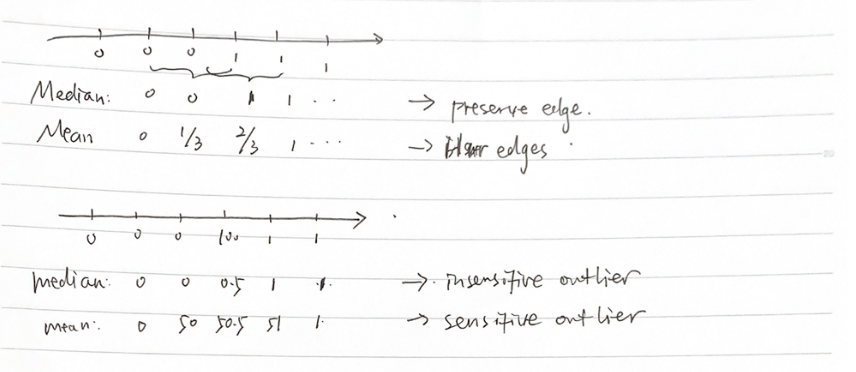 0 0 0 1 1 1
Median: 0 0 1 1 .. → preserve edge.
Mean 0 1/3 2/3 1 ... → blur edges
0 0 0 100 1 1
median: 0 0 0.5 1 1. → insensitive outlier
mean: 0 50 50.5 51 1. → sensitive outlier